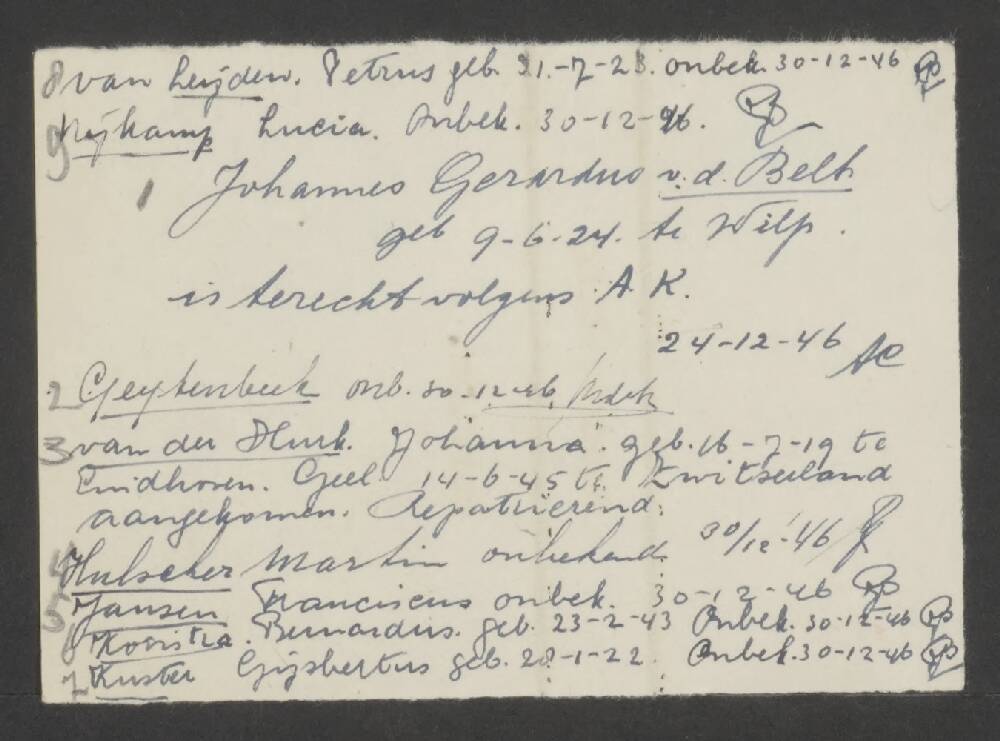 8 van Leijden. Petrus geb. 31-7-23. onbek. 30-12-46
9 Nijkamp Lucia. Onbek. 30-12-46.
1 Johannes Gerardus v.d. Belt
geb 9-6-24. te Wilp.
is terecht volgens A.K.
24-12-46
2 Geytenbeek onb. 30-12-46
3 van der Hurk. Johanna. geb. 16-7-19 te
Eindhoven. Geel. 14-6-45 te Zwitserland
aangekomen. Repatriërend.
30/12-'46
4 Hulscher Martin onbekend
5 Jansen Franciscus onbek. 30-12-46
6 Kooistra. Bernardus. geb. 23-2-43 Onbek. 30-12-46
7 Kuster Gijsbertus geb. 28-1-22. Onbek. 30-12-46